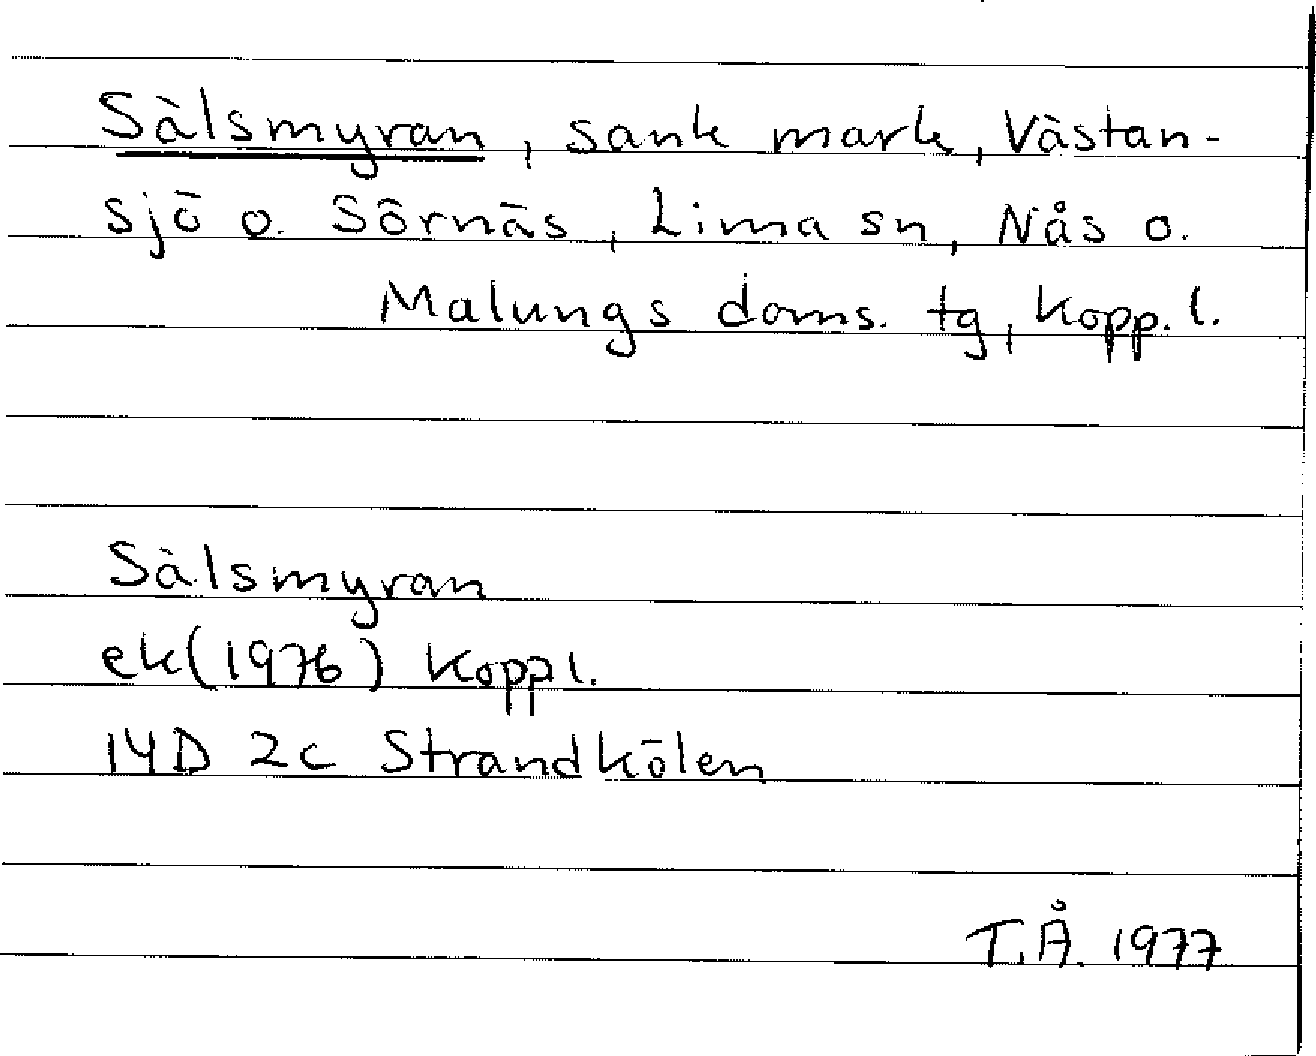 Sälsmyran, sank mark, Västan-
sjö o. Sörnäs, Lima sn, Nås o.
Malungs doms. tg, Kopp. l.
Sälsmyran
ek(1976) Kopp l.
14D 2c Strandkölen
T.Å. 1977